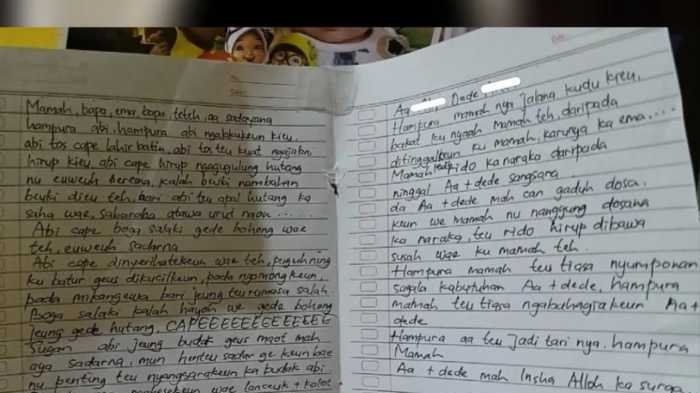 Mamah, bapa, ema, bapa, teteh, aa sadayana
hampura abi, hampura abi ngalakukeun kieu,
abi tos cape lahir batin, abi tos teu kuat ngajalan,
hirup kieu, abi cape hirup ngagugulung hutang
nu euweuh beresna, kalah beuki nambahan
beuki dieu teh, bari abi teu apal hutang ka
saha wae, sabaraha atawa urut naon .....
Abi cape boga salaki gede bohong wae
teh, euweuh sadarna
Abi cape dinyerihatekeun wae teh, puguh ning
ku batur geus dikucilkeun, pada ngomongkeun,
pada mikangewa bari jeung teu rumasa salah.
Boga salaki kalah hayoh we gede bohong
jeung gede hutang, CAPEEEEEEEEEEEEE
Sugan abi jeung budak geus maot mah
aya sadarna, mun henteu sadar ge keun bae
nu penting teu nyangsarakeun ka budak abi
wae
Aa Dede
Hampura mamah nya jalana kudu kieu,
bakat ku nyaah Mamah teh, daripada
ditinggalkeun ku mamah, karunya ka ema....
Mamah rido ka naraka daripada
ninggal Aa + dede sangsara
da Aa + dede mah can gaduh dosa,
keun we mamah nu nanggung dosana
ka naraka, teu rido hirup dibawa
susah wae ku mamah teh.
Hampura mamah teu tiasa nyumponan
sagala kabutuhan Aa + dede, hampura
mamah teu tiasa ngabahagiakeun Aa +
dede
Hampura aa teu jadi tari nya, hampura
Mamah
Aa + dede mah Insha Alloh ka surga